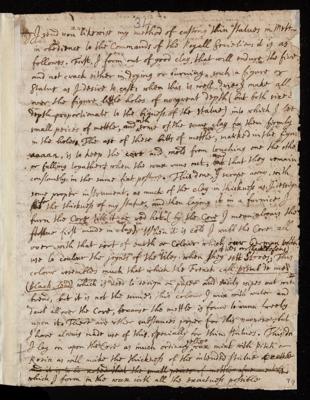 31.
I send you likewise my method of casting thin statues in Mettle
in obedience to the Commands of the Royall Societie it is as
followes. First, I form out of good clay, that will endure the fire
and not crack either in drying or burning, such a figure or
statue as I desire to cast; when that is well dryed I make all
over the figure little holes of unequal depth (but both size &
depth proportionable to the bignesse of the statue) into which I set
small pieces of mettle, and some of the same clay fix them firmly
in the holes. The use of these bits of mettle, marked in the figure
aaaaa, is to keep the core and mold from touching one the other
or falling together when the wax runs out, that they remain
constantly in the same first posture. This done, I scrape away, with
some proper instrument, as much of the clay in thicknesse as I designe
for the thicknesse of my statue, and then laying it in a furnace,
burn the Core till it is red hot by the Core I mean alwaies the
figure first made in clay. When it is cold I wash the Core all
over with that sort of earth or Colour which
use to colour the joynts of the tiles when they This
colour resembles much that which the French call
(black lead) which is used to design on paper and easily wipes out with
bread, but it is not the same; this colour I mix with water
and all over the Core, because the mettle is found to runn
upon it. There are other substances proper for this purpose, but
I have alwais made use of this, specially for thin statues. This done
I lay on upon the Core as much ordinary wax mixt with pitch or
Rosin as will make the thicknesse of the intended statue
which I form in the wax with all the exactnesse possible